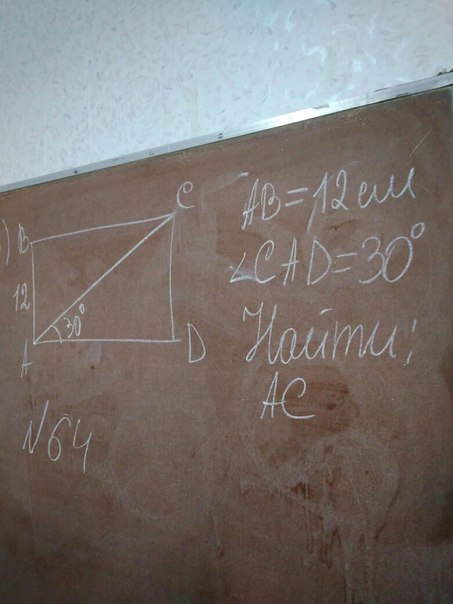 ) B C
12
30°
A D
№64
AB=12см
∠CAD=30°
Найти:
AC